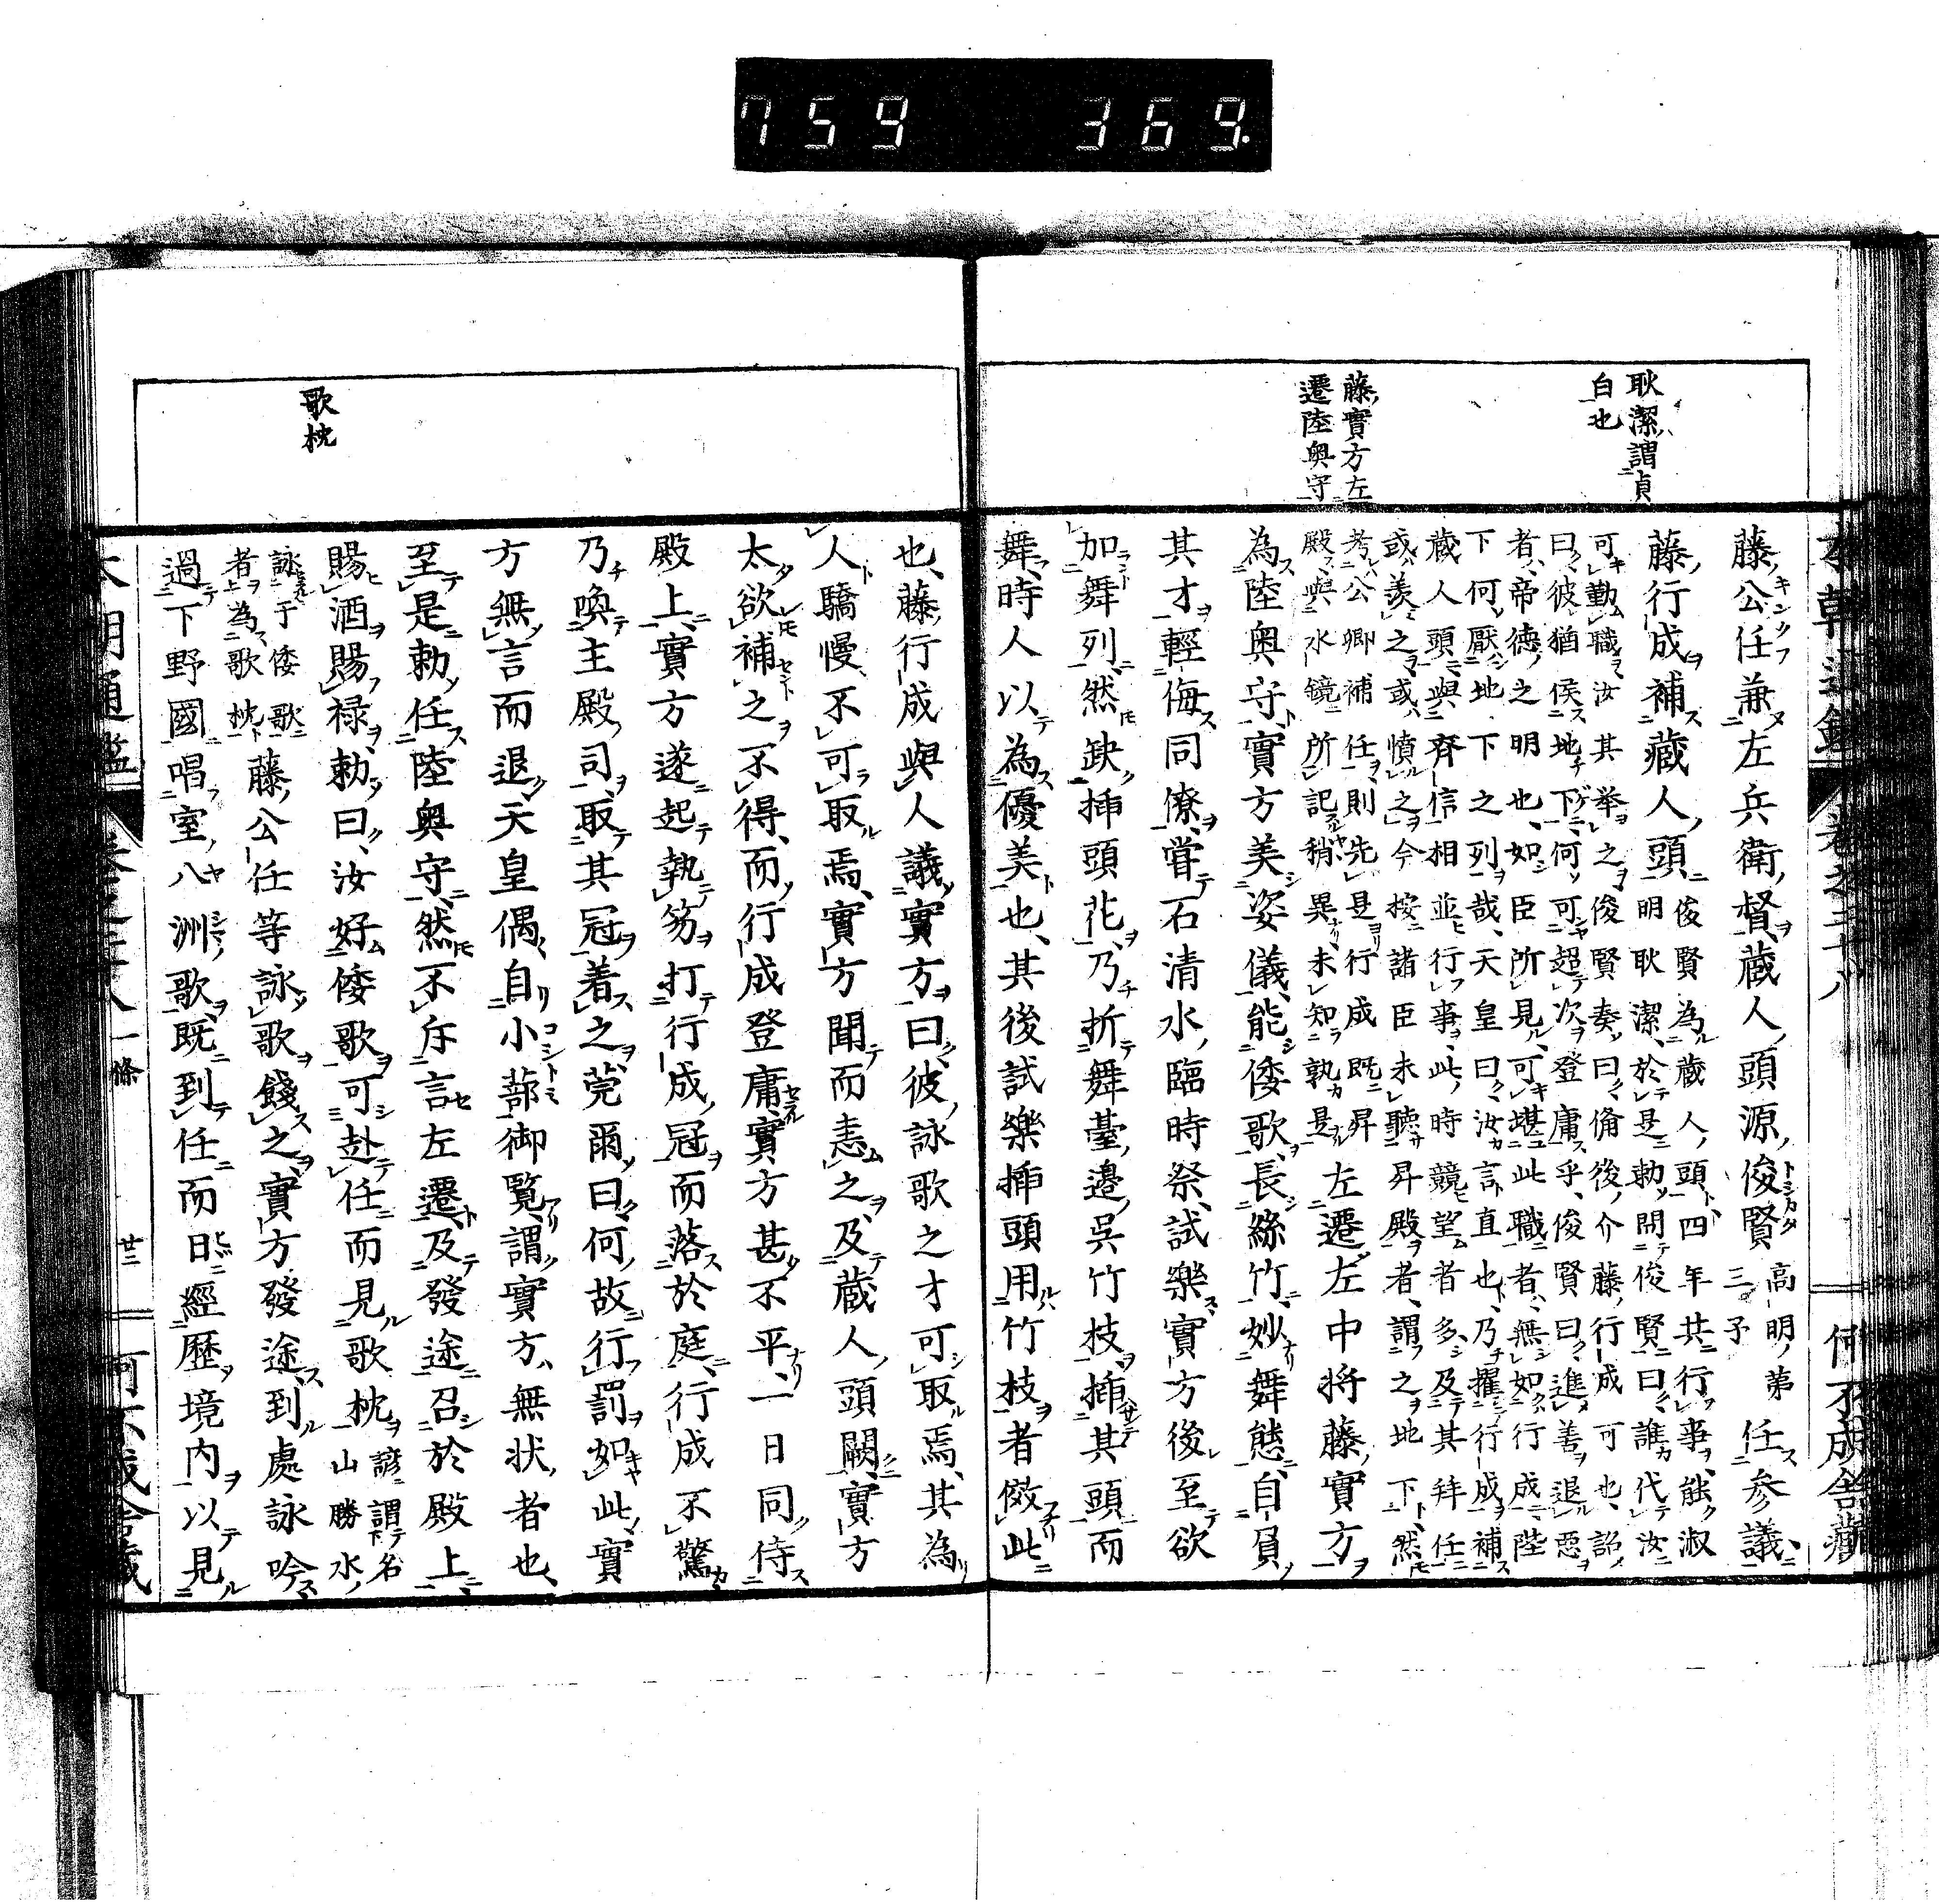 759 369.
耿潔謂貞
白也
藤實方左
遷陸奥守
藤公任兼左兵衛督藏人頭源俊賢高明第
三子
任參議
藤行成補藏人頭俊賢為藏人頭四年其行事能淑
明耿潔於是勅問俊賢曰誰代汝
可勤職汝其举之俊賢奏曰偹後介藤行成可也詔
曰彼猶侯地下何可超次登庸乎俊賢曰進善退惡
者帝德之明也如臣所見可堪此職者無如行成陛
下何厭地下之列哉天皇曰汝言直也乃擢行成補
藏人頭與齊信相並行事此時競望者多及其拜任
或羨之或憤之今按諸臣未聽昇殿者謂之地下然
考公卿補任則先是行成既昇
殿與水鏡所記稍異未知孰是
左遷左中将藤實方
為陸奥守實方美姿儀能倭歌長絲竹妙舞態自負
其才輕侮同僚甞石清水臨時祭試樂實方後至欲
加舞列然缺挿頭花乃折舞臺邊呉竹枝挿其頭而
舞時人以為優美也其後試樂挿頭用竹枝者傚此
歌枕
也藤行成與人議實方曰彼詠歌之才可取焉其為
人驕慢不可取焉實方聞而恚之及藏人頭闕實方
太欲補之不得而行成登庸實方甚不平一日同侍
殿上實方遂起執笏打行成冠而落於庭行成不驚
乃喚主殿司取其冠着之莞爾曰何故行罰如此實
方無言而退天皇偶自小蔀御覧謂實方無状者也
至是勅任陸奥守然不斥言左遷及發途召於殿上
賜酒賜禄勅曰汝好倭歌可赴任而見歌枕諺謂名
山勝水
詠于倭歌
者為歌枕
藤公任等詠歌餞之實方發途到處詠吟
過下野國唱室八洲歌既到任而日經歴境内以見